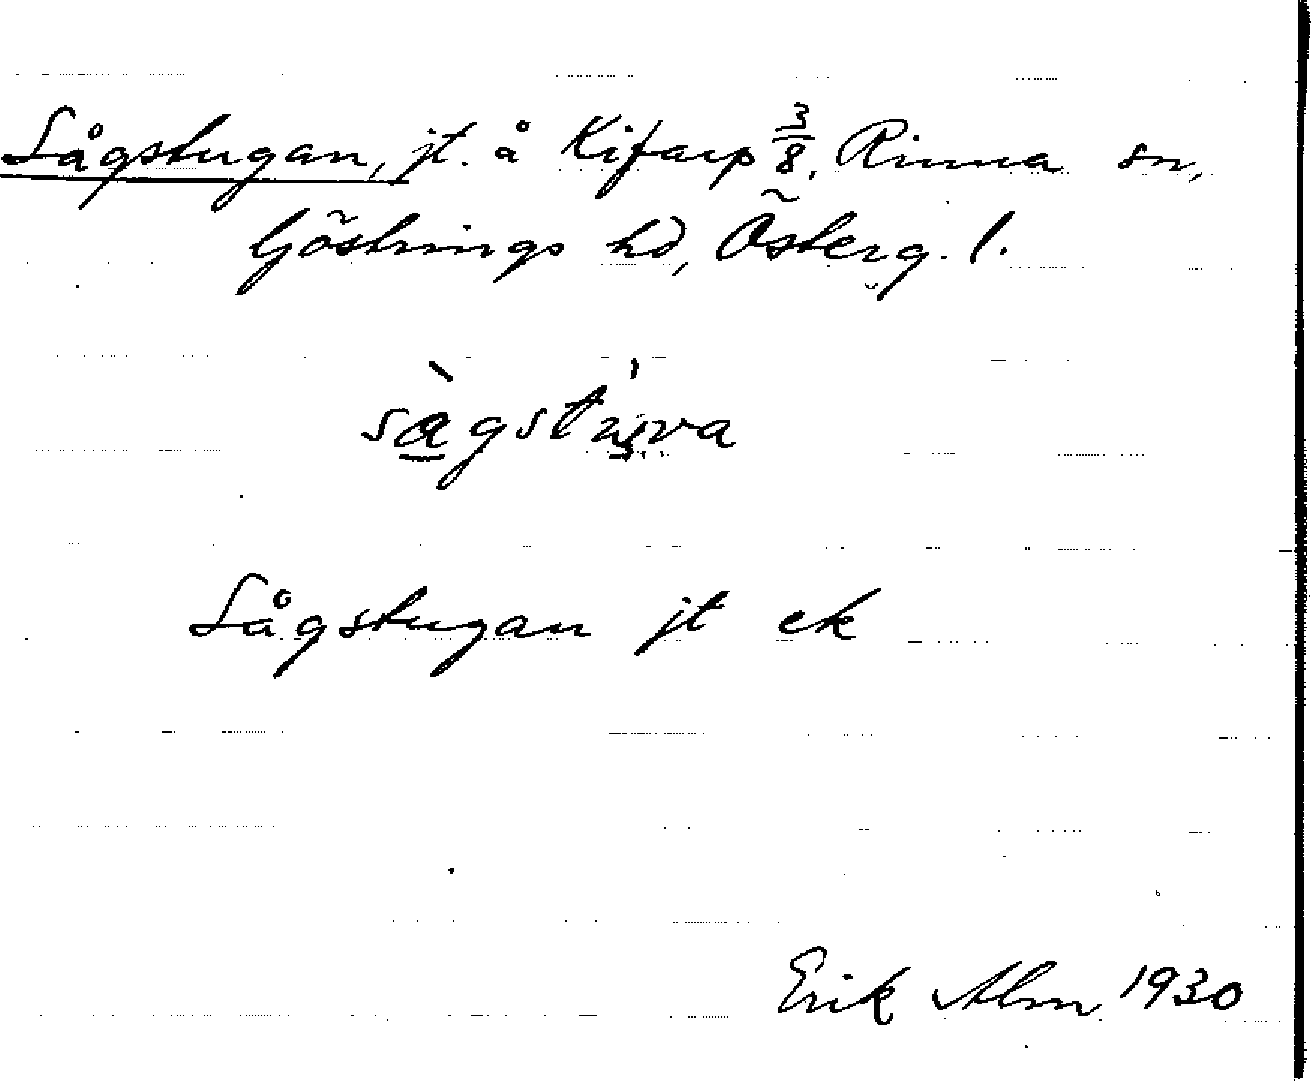 Sågstugan, jt. å Kifarp 3/8, Rinna sn,
Göstrings hd, Österg. l.
sàgstu̢va
Sågstugan jt ek
Erik Alm 1930